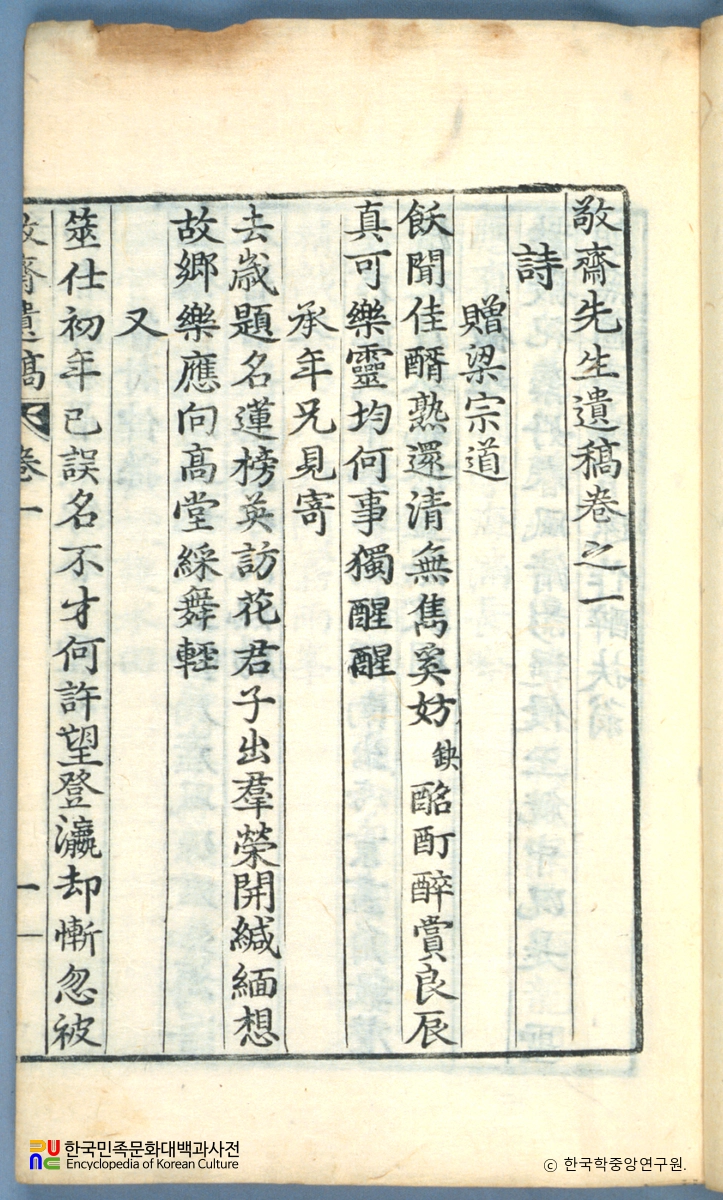 敬齋先生遺稿卷之一
詩
贈梁宗道
飫聞佳醑熟還清無雋奚妨缺酩酊醉賞良辰
真可樂靈均何事獨醒醒
承年兄見寄
去歲題名蓮榜英訪花君子出羣榮開緘緬想
故鄉樂應向高堂綵舞輕
又
筮仕初年已誤名不才何許望登瀛却慚忽被
敬齋遺稿 卷一 一
한국민족문화대백과사전
Encyclopedia of Korean Culture
ⓒ 한국학중앙연구원.